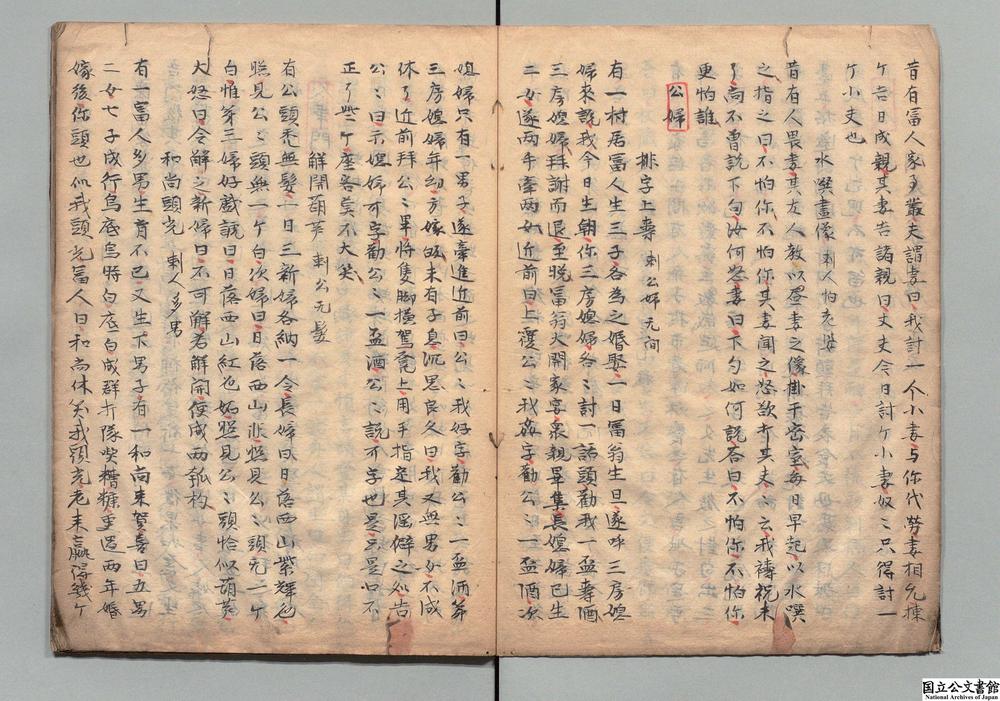 昔有冨人家多叢夫謂妻曰我討一个小妻与你代勞妻相允揀
ケ吉日成親其妻告諸親曰丈夫今日討ケ小妻奴〻只得討一
ケ小丈也
水噀畫像 刺人怕老婆
昔有人畏妻其友人教以畫妻之像掛于密室每日早起以水噀
之指之曰不怕你不怕你其妻聞之怒欲打其夫〻云我禱祝未
了尚不曾説下句汝何怒妻曰下句如何説答曰不怕你不怕你
更怕誰
公婦
排字上壽 刺公婦无間
有一村居冨人生三子各為之婚娶一日冨翁生旦遂呼三房媳
婦來説我今日生朝你三房媳婦各〻討一話頭勸我一盃壽酒
三房媳婦拜謝而退至晩冨翁大開家宴衆親畢集長媳婦已生
二女遂両手牽両女近前曰上覆公〻我姦字勸公〻一盃酒次
媳婦只有一男子遂牽進近前曰公〻我好字勸公〻一盃酒第
三房媳婦年幼方嫁故未有子息沉思良久曰我又無男女不成
休了近前拜公〻畢將隻脚横駕凳上用手指定其淫僻之処告
公〻曰示媳婦可字勸公〻一盃酒公〻説可字也是只是口不
正了些ケ座客莫不大笑
觧開葫芦 刺公无髮
有公頭禿無髮一日三新婦各納一令長婦曰日落西山紫輝色
照見公〻頭無一ケ白次婦曰日落西山 照見公〻頭无一ケ
白惟第三婦好戲誠曰日落西山紅色妬照見公〻頭恰似葫芦
大怒曰令解之新婦曰不可解若解開使成両瓠杓
和尚頭光 刺人多男
有一富人多男生育不已又生下男子有一和尚来賀喜曰五男
二女七子成行烏底烏特白底白成群打隊喫糟糠重遇両年婚
嫁後你頭也似我頭光富人曰和尚休笑我頭光老来贏得幾ケ
国立公文書館
National Archives of Japan